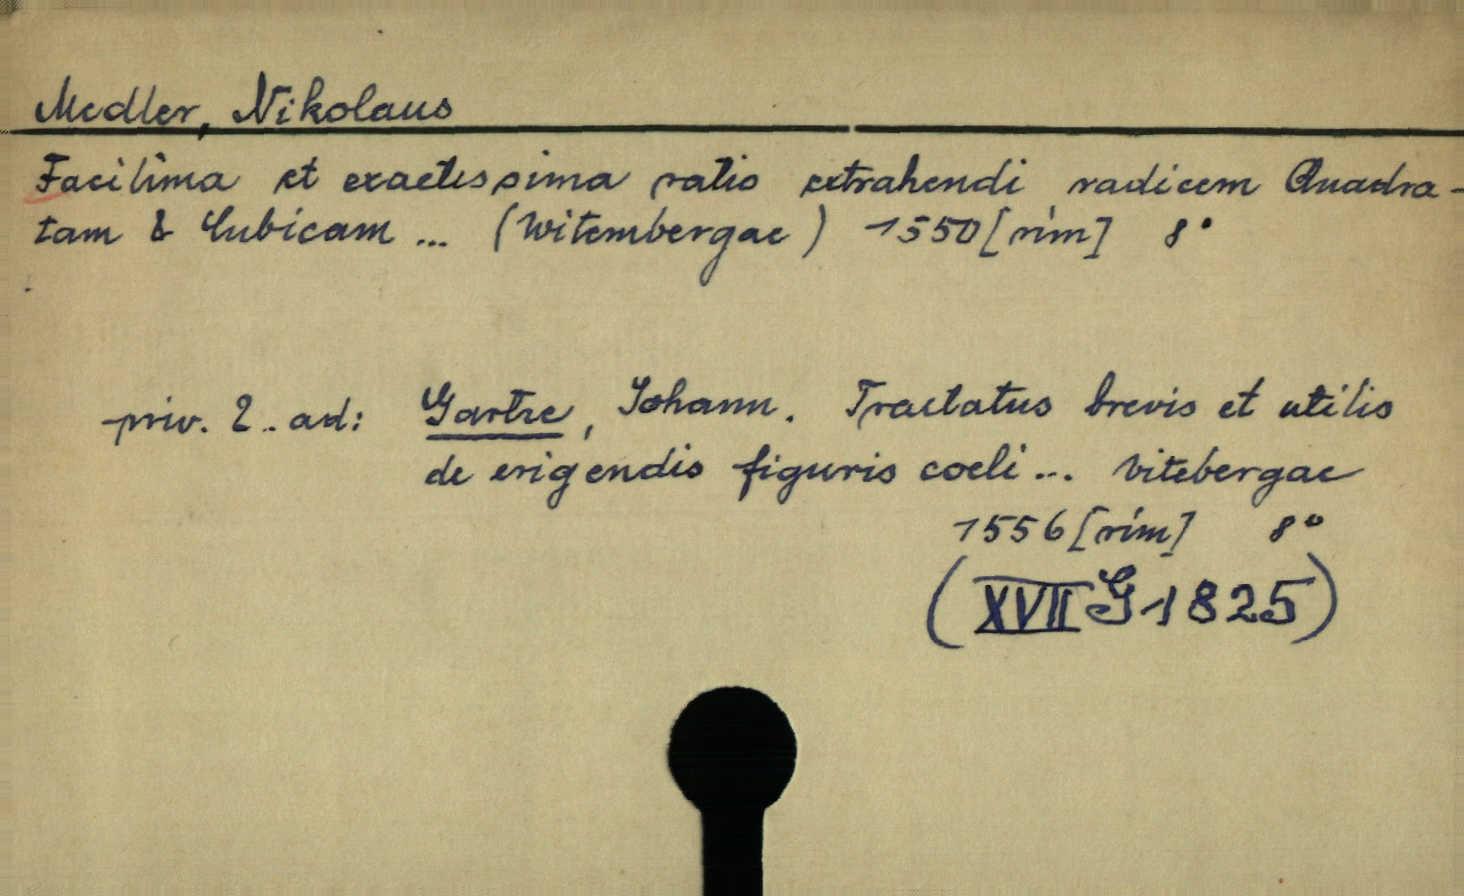 Medler, Nikolaus
Facilima et exactissima ratio extrahendi radicem Quadra-
tam & Cubicam ... (Witembergae) 1550 [rim] 8°
priv. 2. ad: Gartze, Johann. Tractatus brevis et utilis
de erigendis figuris coeli ... Vitebergae
1556 [rim] 8°
(XVII G 1825)